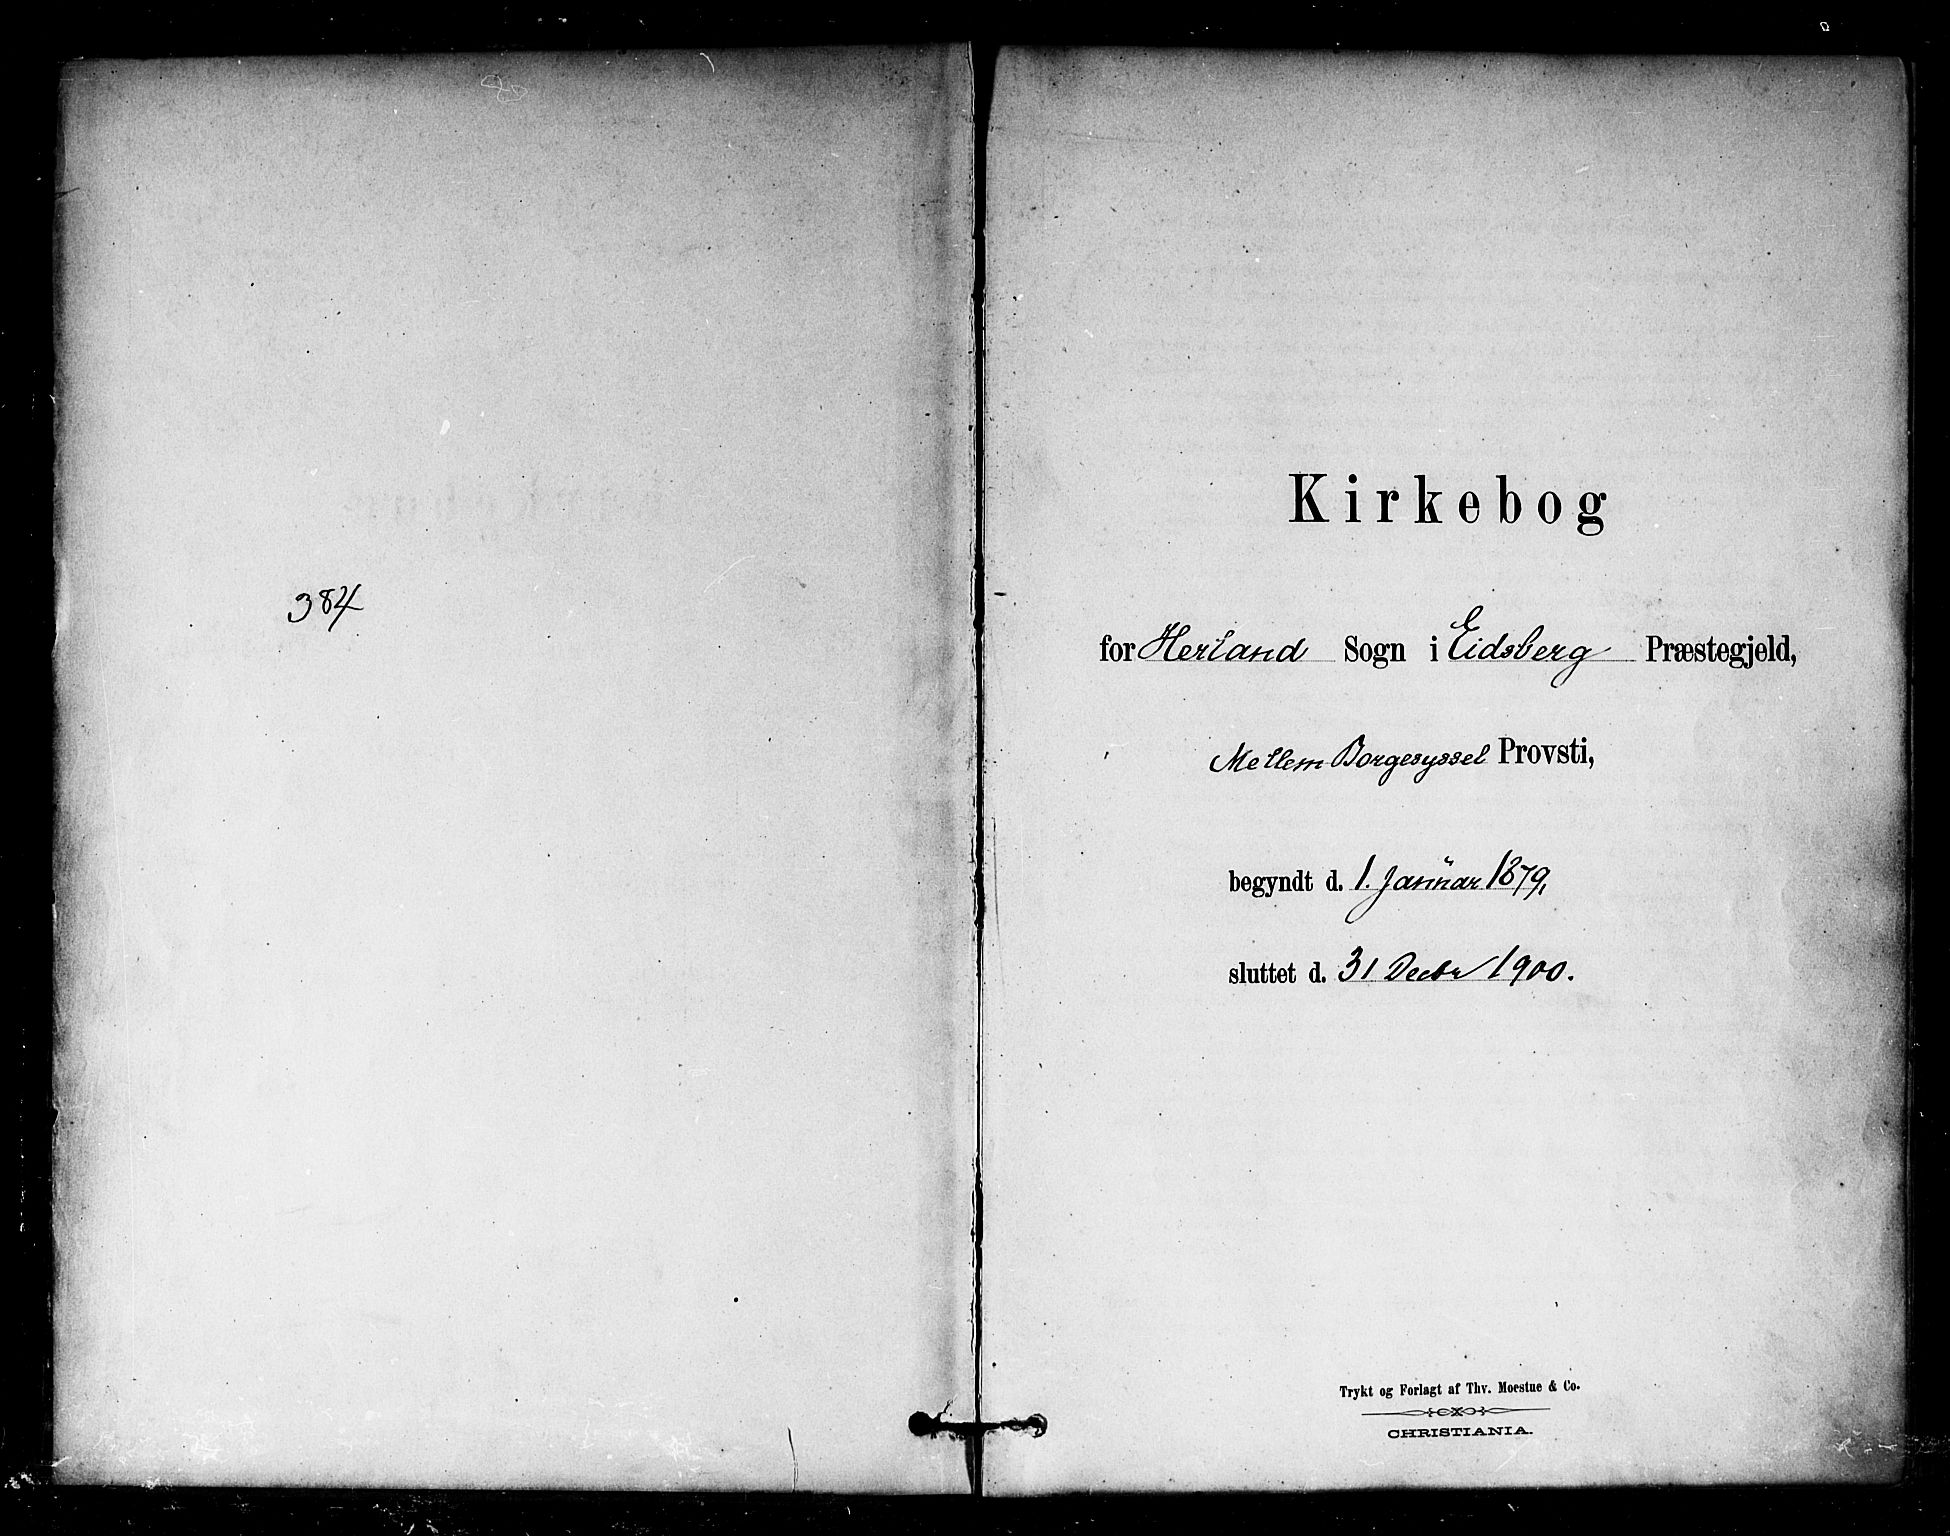 384
Kirkebog
for Herland Sogn i Eidsberg Præstegjeld,
Mellem Borgesyssel Provsti,
begyndt d. 1. Januar 1879,
sluttet d. 31 Decbr 1900.
Trykt og Forlagt af Thv. Moestue & Co.
CHRISTIANIA.